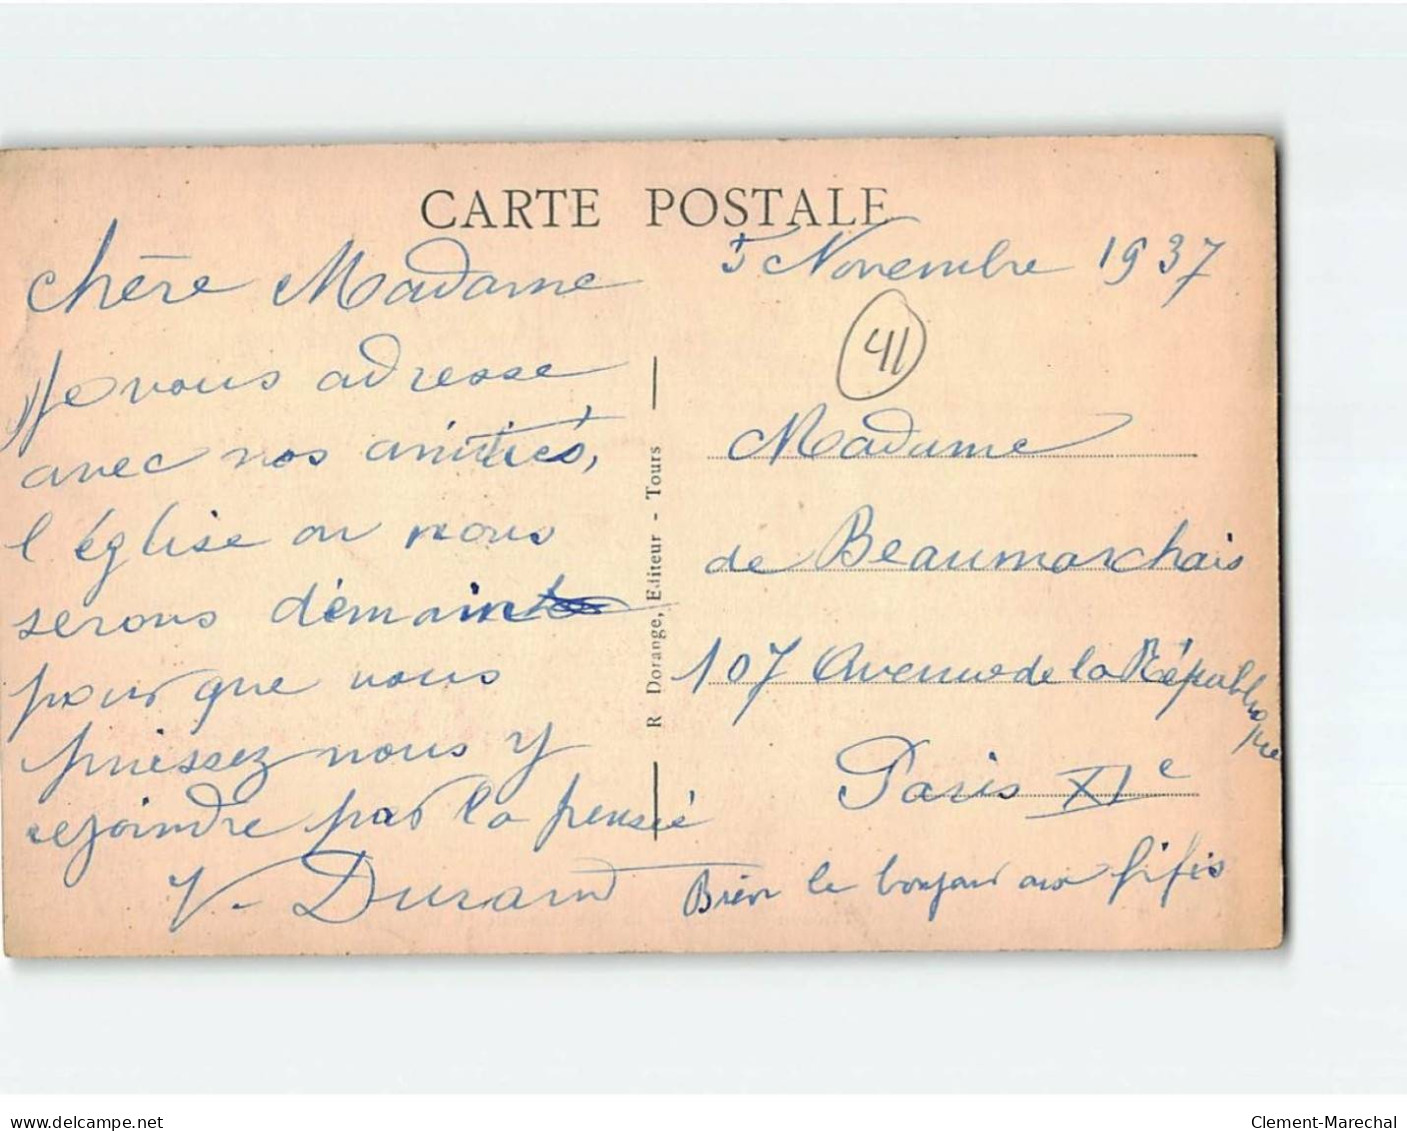 CARTE POSTALE
5 Novembre 1937
41
Chère Madame
Je vous adresse
avec nos amitiés,
l'église ou nous
serons demain
pour que vous
puissez nous y
rejoindre par la pensée
V. Durand
R. Dorange, Editeur - Tours
Madame
de Beaumarchais
107 Avenue de la République
Paris XIe
Bien le bonjour aux fifis
delcampe.net
Clement-Marechal